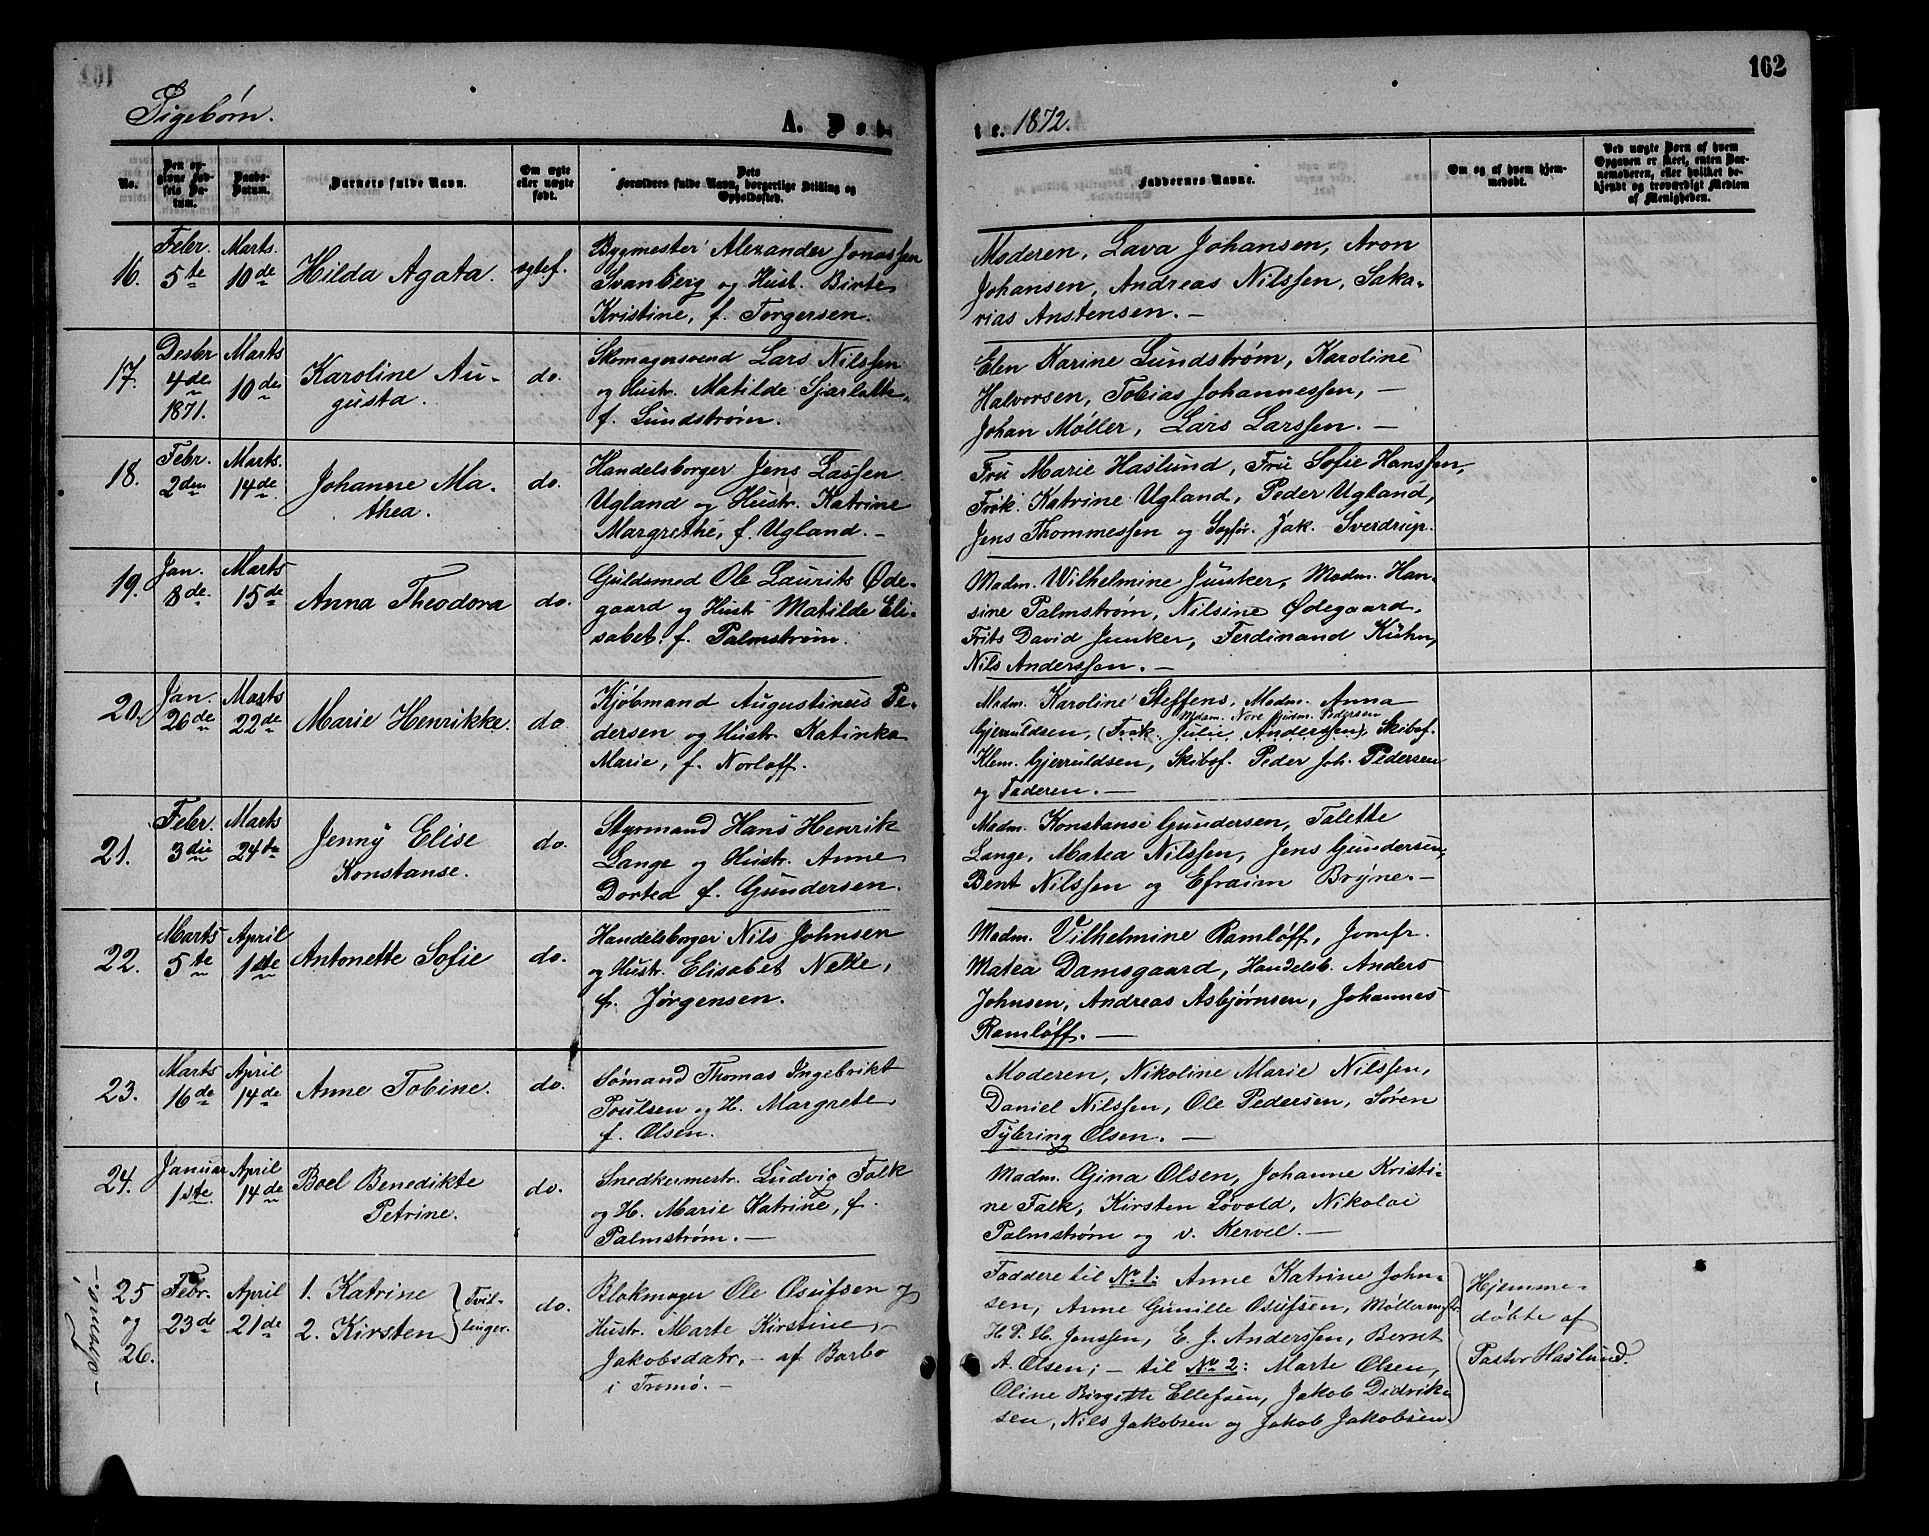 162
Pigebørn.
A. Døb-
te. 1872.
No.
Den op-
givne Fød-
sels Da-
tum.
Daabs-
Datum.
Barnets fulde Navn.
Om ægte
eller uægte
født.
Dets
Forældres fulde Navn, borgerlige Stilling og
Opholdssted.
Faddernes Navne.
Om og af hvem hjem-
medøbt.
Ved uægte Børn af hvem
Opgaven er skeet, enten Bar-
nemoderen, eller hvilket be-
kjendt og troværdigt Medlem
af Menigheden.
16.
Febr.
5te
Marts.
10de
Hilda Agata.
egtef.
Bygmester Alexander Jonassen
Svanberg og Hust. Birte
Kristine, f. Torgersen.
Moderen, Lava Johansen, Aron
Johansen, Andreas Nilssen, Saka-
rias Anstensen. -
17.
Desbr
4de
1871.
Marts
10de
Karoline Au-
gusta.
do.
Skomagersvend Lars Nilssen
og Hustr. Matilde Sjarlotte
f. Lundstrøm.
Elen Karine Lundstrøm, Karoline
Halvorsen, Tobias Johannessen, -
Johan Møller, Lars Larssen. -
18.
Febr.
2den
Marts.
14de
Johanne Ma-
thea.
do.
Handelsborger Jens Lassen
Ugland og Hustr. Katrine
Margrethe, f. Ugland. -
Fru Marie Haslund, Fru Sofie Hanssen,
Frøk. Katrine Ugland, Peder Ugland,
Jens Thommessen og Sagfør. Jak. Sverdrup.
19.
Jan.
8de
Marts
15de
Anna Theodora
do.
Guldsmed Ole Laurits Øde-
gaard og Hust. Matilde Eli-
sabet f. Palmstrøm.
Madm. Wilhelmine Junker, Madm. Han-
sine Palmstrøm, Nilsine Ødegaard,
Frits David Junker, Ferdinand Kühn,
Nils Anderssen. -
20.
Jan.
26de
Marts
22de
Marie Henrikke.
do.
Kjøbmand Augustinus Pe-
dersen og Hustr. Katinka
Marie, f. Norloff.
Madm. Karoline Steffens, Madm. Anna
Madm. Nore Gudm. Pedersen
Gjeruldsen, (Frøk. Julie Anderssen), Skibsf.
Klem. Gjerruldsen, Skibsf. Peder Joh. Pedersen
og Faderen. -
21.
Febr.
3die
Marts
24de
Jenny Elise
Konstanse.
do.
Styrmand Hans Henrik
Lange og Hustr. Anne
Dortea f. Gundersen.
Madm. Konstanse Gundersen, Talette
Lange, Matea Nilssen, Jens Gundersen,
Bent Nilssen og Efraim Bryne. -
22.
Marts
5te
April
1ste
Antonette Sofie
do.
Handelsborger Nils Johnsen
og Hustr. Elisabet Nelle,
f. Jørgensen.
Madm. Vilhelmine Ramløff, Jomfr.
Matea Damsgaard, Handelsb. Anders
Johnsen, Andreas Asbjørnsen, Johannes
Ramløff. -
23.
Marts
16de
April
14de
Anne Tobine.
do.
Sømand Thomas Ingebrikt
Poulsen og H. Margrete
f. Olsen.
Moderen, Nikoline Marie Nilssen,
Daniel Nilssen, Ole Pedersen, Søren
Tybring Olsen. -
24.
Januar
1ste
April
14de
Boel Benedikte
Petrine.
do.
Snedkermestr. Ludvig Falk
og H. Marie Katrine, f.
Palmstrøm. -
Madm. Gina Olsen, Johanne Kristi-
ne Falk, Kirsten Løvold, Nikolai
Palmstrøm og v. Kervel. -
- Tromø. -
25
og
26.
Febr.
23de
April
21de
1. Katrine
2. Kirsten
Tvil-
linger.
do.
Blokmager Ole Osufsen og
Hustr. Marte Kirstine, -
Jakobsdatr, - af Barbo
i Tromø. -
Faddere til No 1: Anne Katrine John-
sen, Anne Gunille Osufsen, Møllermestr.
H. P. H. Jenssen, E. J. Anderssen, Bernt
A. Olsen; - til No 2: Marte Olsen,
Oline Birgitte Ellefsen, Jakob Didrik-
sen, Nils Jakobsen og Jakob Jakobsen.
Hjemme-
døbte af
Pastor Haslund.